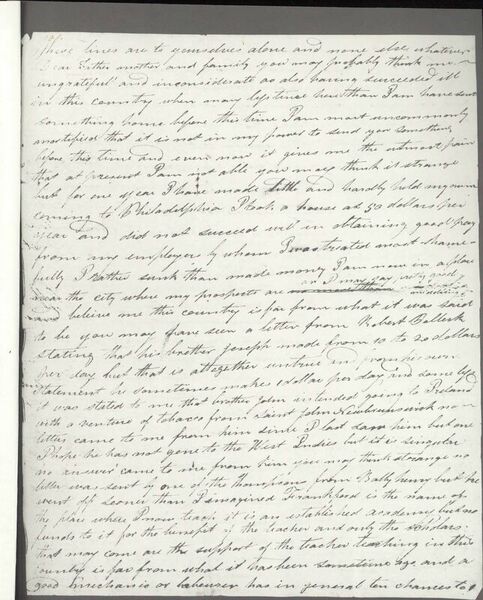 These lines are to yourselves alone and none else whatever
Dear Father mother and family you may probably think me
ungrateful and inconsiderate as also having succeeded ill
in this country when many less time here than I am have sent
something home before this time I am most uncommonly
mortified that it is not in my power to send you something
before this time and even now it gives me the utmost pain
that at present I am not able you may think it strange
but for one year I have made little and hardly held my own
coming to Philadelphia I took a house at 50 dollars per
year and did not succeed well in obtaining good pay
from my employers by whom I was treated most shame-
fully I rather sunk than made money I am now in a place
near the city where my prospects are or I may say very good
and believe me this country is far from what it was said
to be you may have seen a letter from Robert Pollock
stating that his brother Joseph made from 10 to 20 dollars
per day but that is altogether untrue in own
statement he sometimes makes 1 dollar per day and some less
it was stated to me that brother John intended going to Ireland
with a venture of tobacco from Saint John Newbrunswick no
letter came to me from him since I last saw him but one
I hope he has not gone to the West Indies but it is singular
no answer came to me from him you may think strange no
letter was sent by one of the Thompsons from Ballyhenry but he
went off sooner than I imagined Frankford is the name of
the place where I now teach it is an established academy but no
funds to it for the benefit of the teacher and only the scholars
that may come are the support of the teacher teaching in this
country is far from what it has been some time ago and a
good mechanic or labourer has in general ten chances to